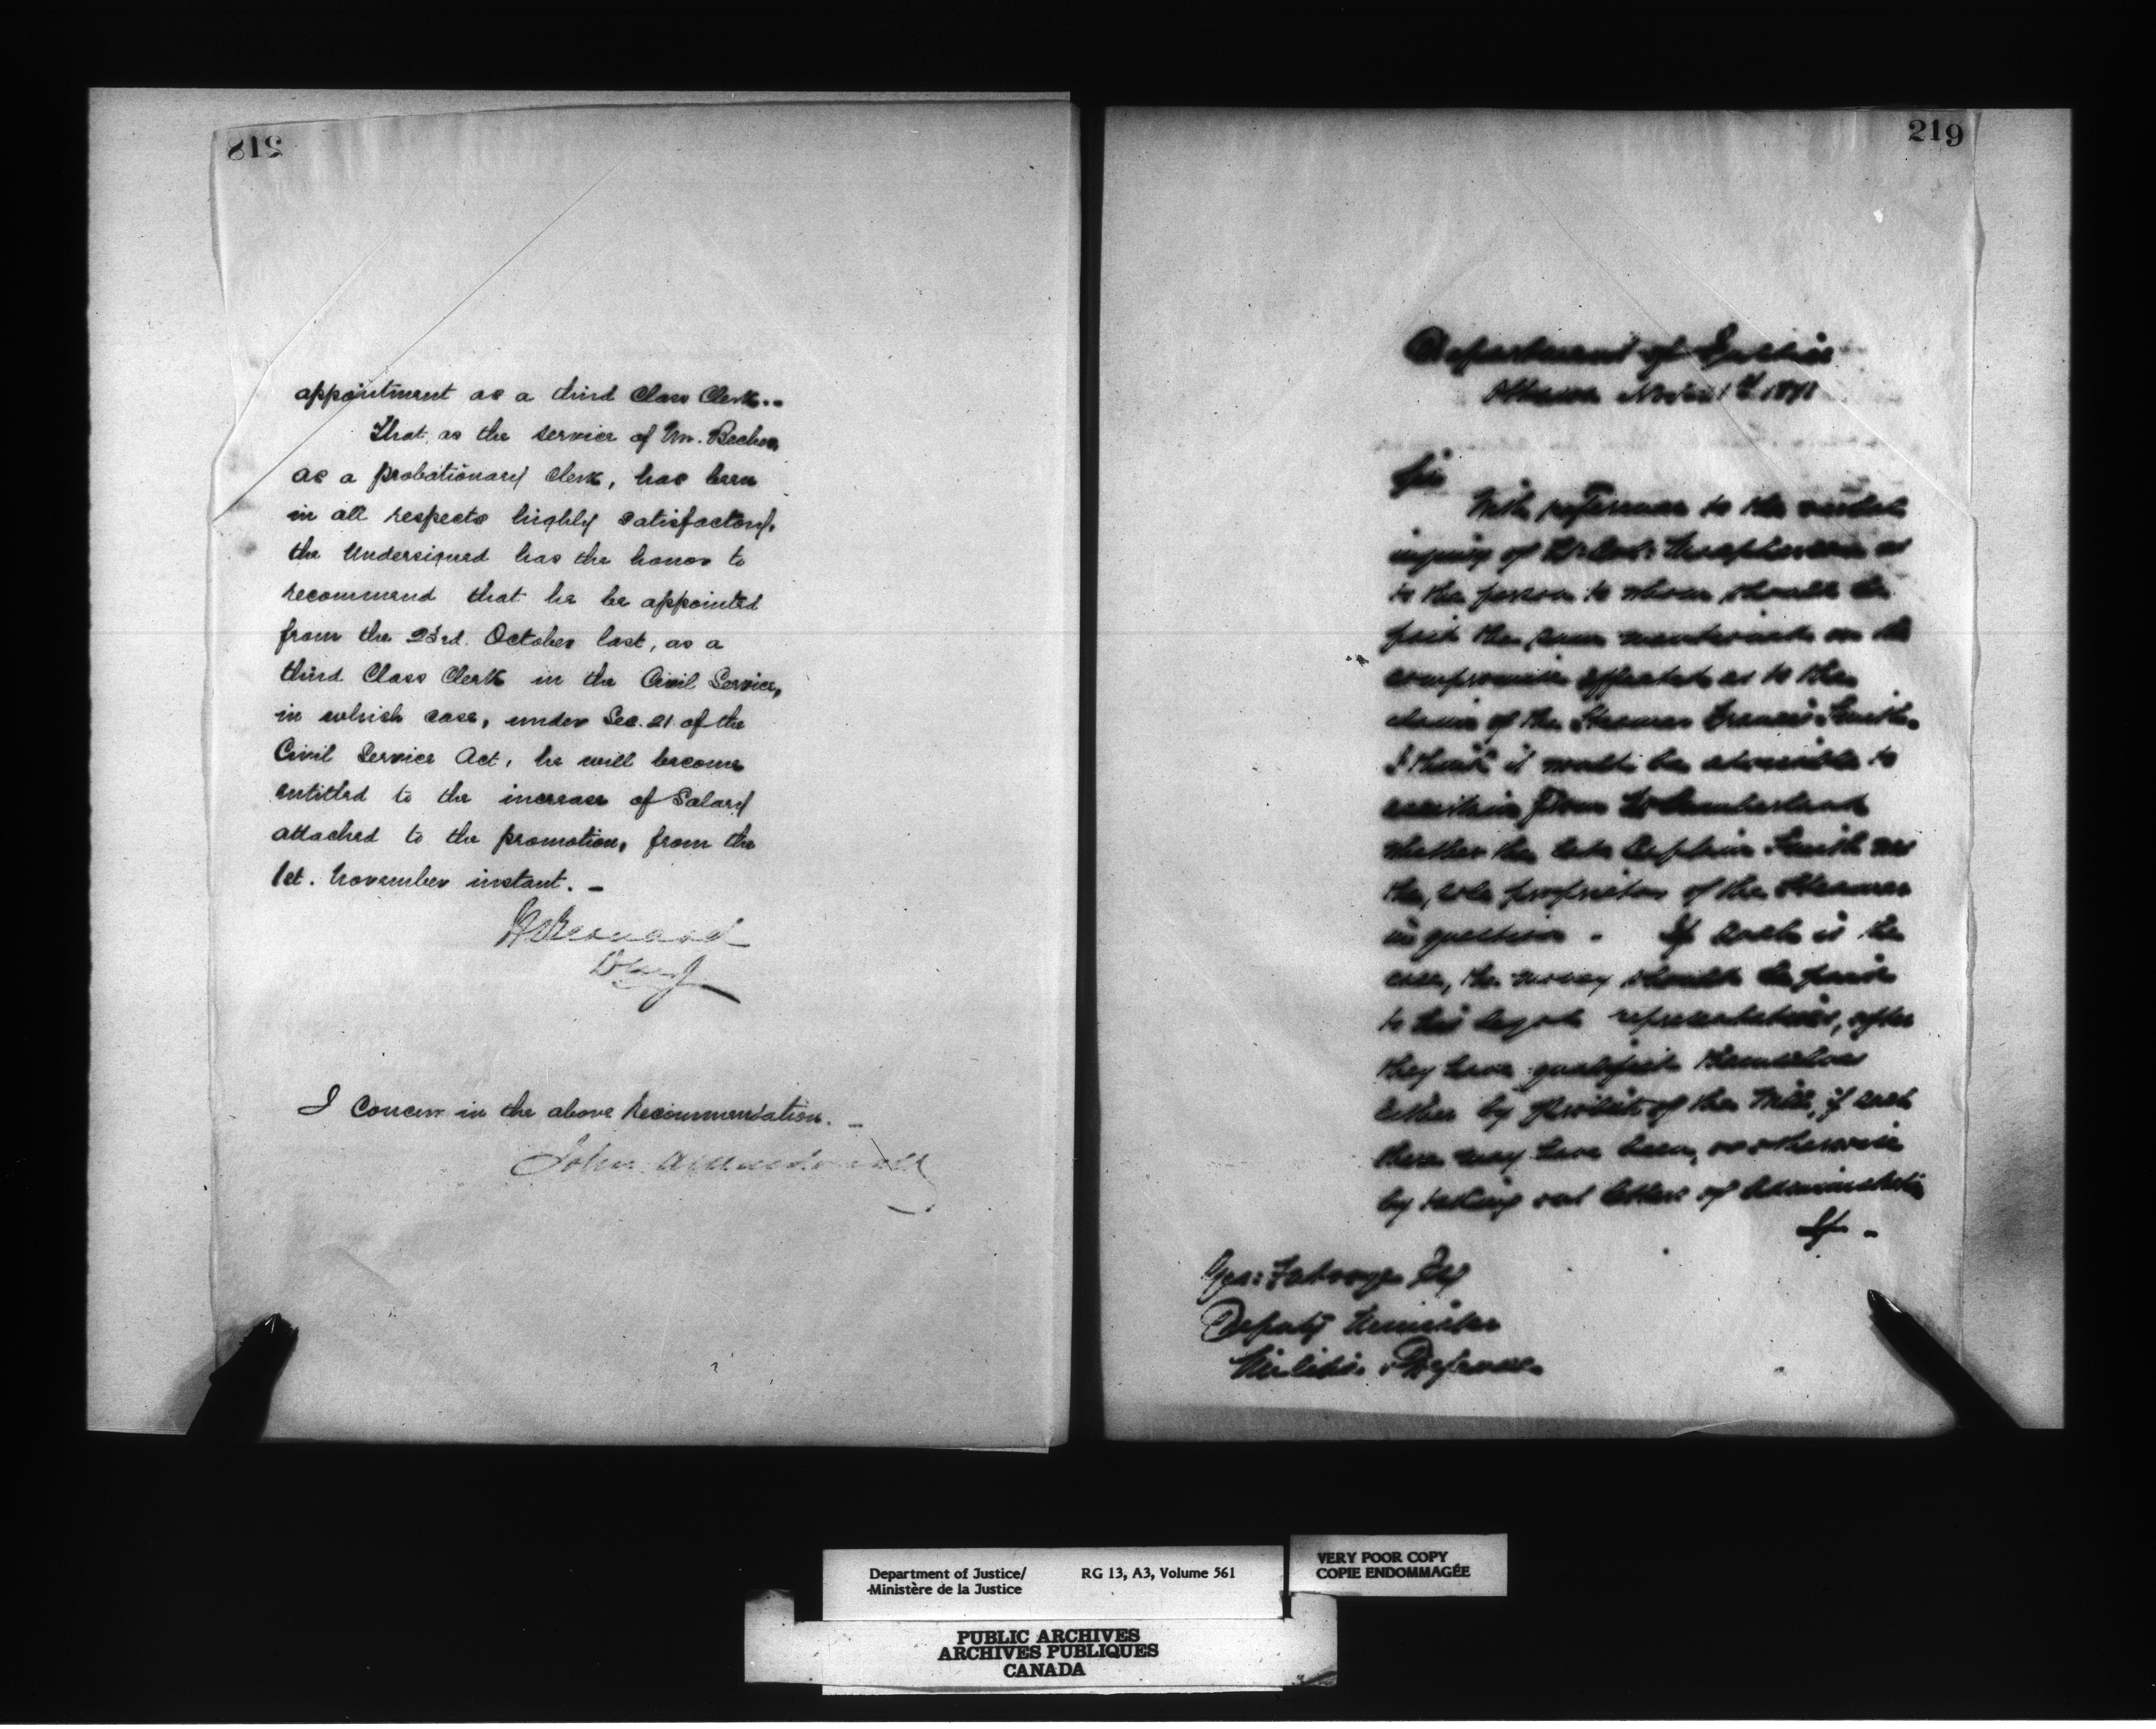 218
appointment as a third Class Clerk..
That, as the service of Mr. Becher,
as a probationary Clerk, has been
in all respects highly satisfactory,
the Undersigned has the honor to
recommend that he be appointed
from the 23rd. October last, as a
third Class Clerk in the Civil Service,
in which case, under Sec. 21 of the
Civil Service Act, he will become
entitled to the increase of Salary
attached to the promotion, from the
1st. November instant. -
I Concur in the above Recommendation. -
John A Macdonald
219
Department of Justice
Ottawa Novr 1st 1871
Sir
With reference to the verbal
inquiry of as
to the person to whom should be
paid the sum mentioned in the
compromise effected as to the
claim of the Steamer Francis Smith.
I think it would be advisable to
ascertain from Mr Cumberland
whether the late Captain Smith was
the sole proprietor of the Steamer
in question. If such is the
case, the money should be paid
to his legal representatives, after
they have qualified themselves
either by probate of the Will, if such
there may have been, or otherwise
by taking out letters of Administration
Geo: Futvoye Esq
Deputy Minister
Militia & Defence
Department of Justice/ RG 13, A3, Volume 561
Ministère de la Justice
VERY POOR COPY
COPIE ENDOMMAGÉE
PUBLIC ARCHIVES
ARCHIVES PUBLIQUES
CANADA